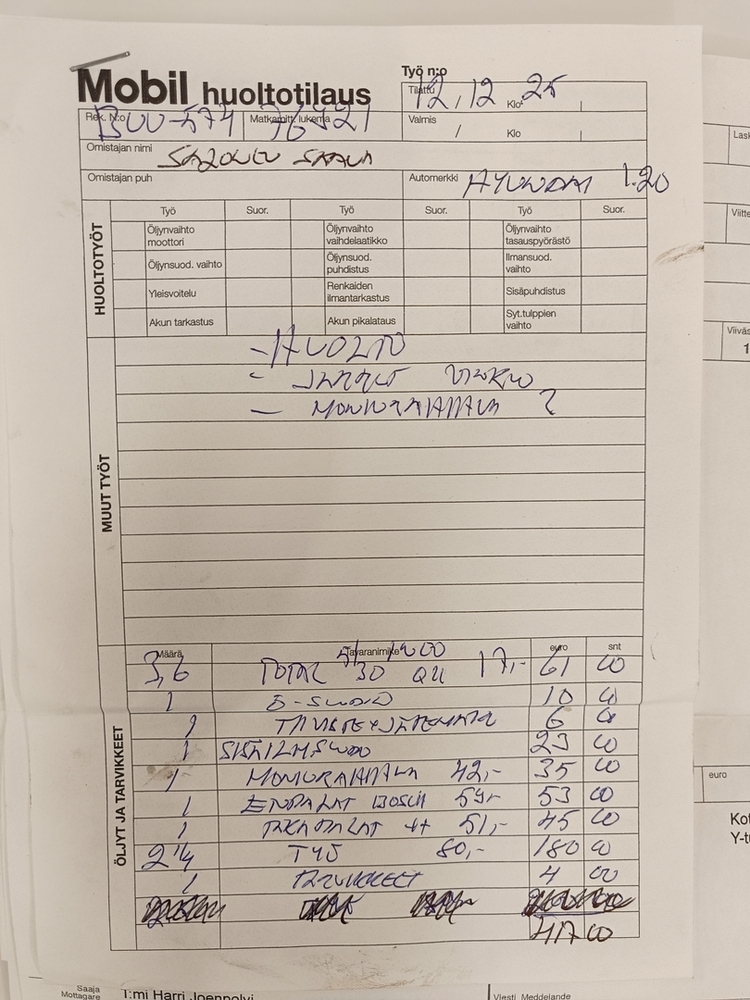 Työ n:o
Mobil huoltotilaus
Tilattu 12,12 25 Klo
Rek. N:o BUU-574 Matkamitt. lukema 76921
Valmis / Klo
Omistajan nimi
Omistajan puh Automerkki HYUNDAI 1.20
HUOLTOTYÖT
Työ Suor. Työ Suor. Työ Suor.
Öljynvaihto moottori Öljynvaihto vaihdelaatikko Öljynvaihto tasauspyörästö
Öljynsuod. vaihto Öljynsuod. puhdistus Ilmansuod. vaihto
Yleisvoitelu Renkaiden ilmantarkastus Sisäpuhdistus
Akun tarkastus Akun pikalataus Syt.tulppien vaihto
MUUT TYÖT
- HUOLTO
- JARRUT
- MONIURAHIHNA ?
ÖLJYT JA TARVIKKEET
Määrä Tavaranimike euro snt
3,6 TOTAL 5/30 9000 17,- 61 00
1 Ö-SUOD 10 00
1 6 00
1 SISÄILMSUOD 23 00
1 MONIURAHIHNA 42,- 35 00
1 ETUPALAT BOSCH 59,- 53 00
1 TAKAPALAT -11- 51,- 45 00
2 1/4 TYÖ 80,- 180 00
1 TARVIKKEET 4 00
417 00
Saaja
Mottagare T:mi Harri Joenpolvi
Viesti Meddelande
Lask
Viitte
Viiväs
1
euro
Kot
Y-tu